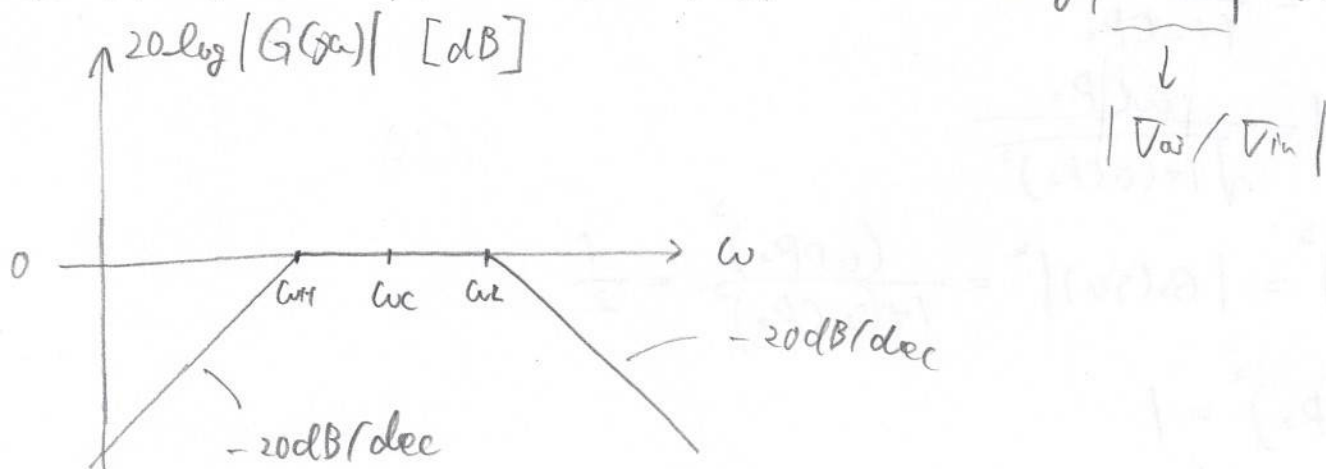 20log|G(jω)| [dB]
|Vo/Vin|
0
ωH ωC ωL
ω
-20dB/dec
-20dB/dec